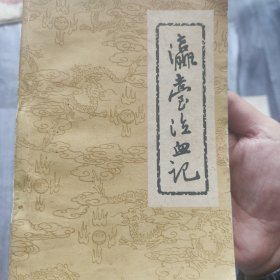 瀛台泣血记